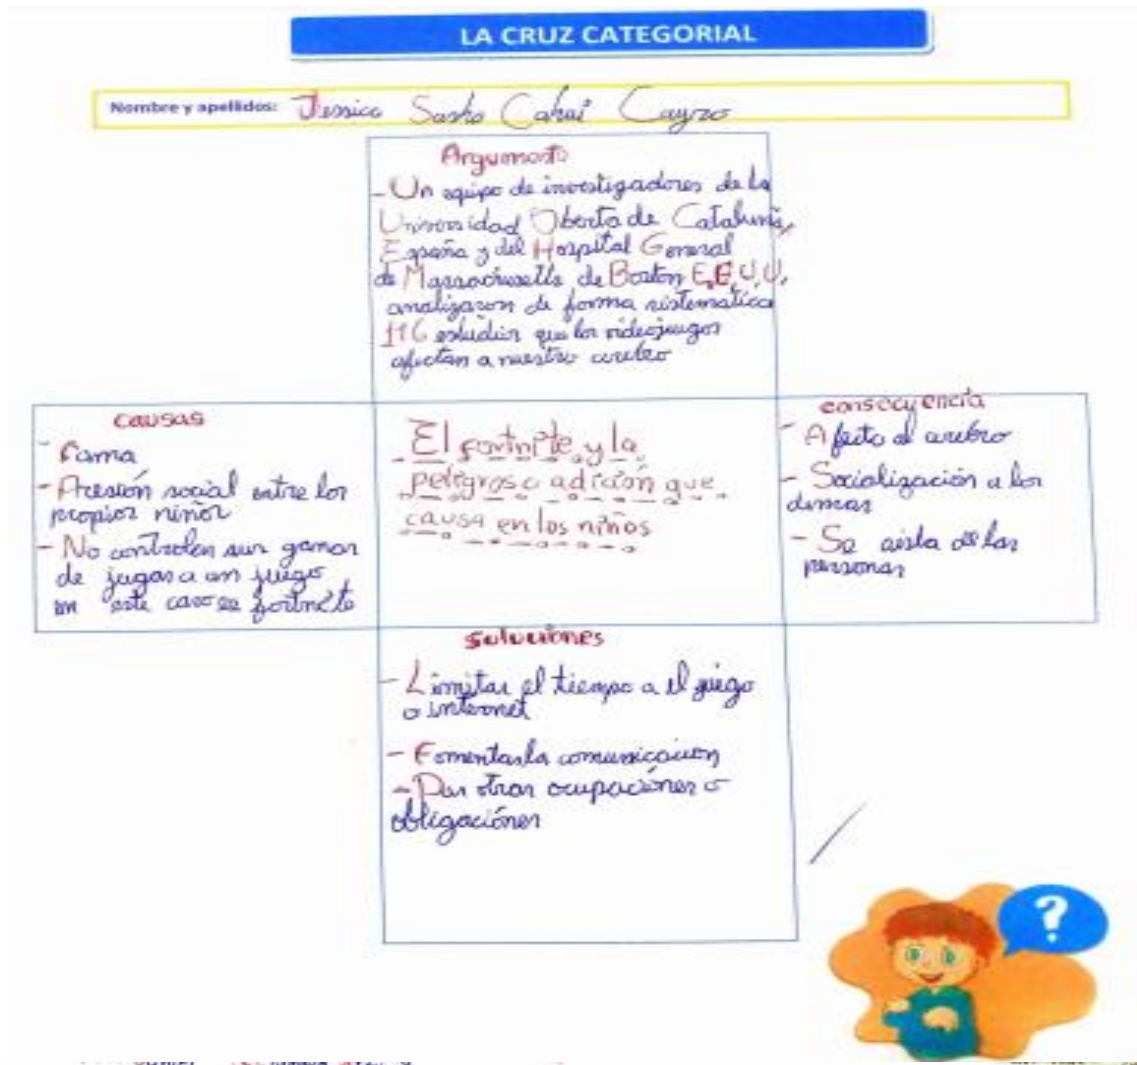 LA CRUZ CATEGORIAL
Nombre y apellidos: Jessica Sasha Cahui Cayro
Argumento
- Un equipo de investigadores de la
Universidad Oberta de Cataluña,
España y del Hospital General
de Massachusetts de Boston E.E.U.U,
analizaron de forma sistematica
116 estudios que los videojuegos
afectan a nuestro cerebro
causas
- Fama
- Presión social entre los
propios niños
- No controlan sus ganas
de jugar a un juego
en este caso es fortnite
- El fortnite y la
peligrosa adición que
causa en los niños
consecuencia
- Afecta al cerebro
- Socialización a los
demas
- Se aisla de las
personas
soluciones
- Limitar el tiempo a el juego
o internet
- Fomentar la comunicacion
- Dar otras ocupaciónes o
obligaciónes
?